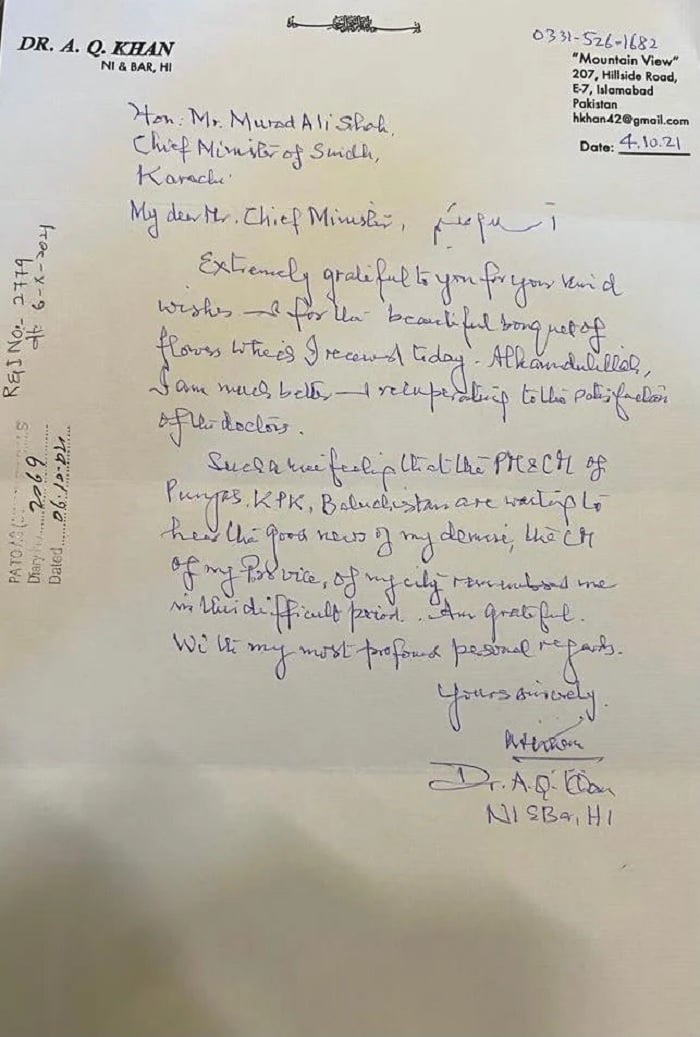 DR. A. Q. KHAN
NI & BAR, HI
0331-526-1682
"Mountain View"
207, Hillside Road,
E-7, Islamabad
Pakistan
hkhan42@gmail.com
Date: 4.10.21
Hon. Mr. Murad Ali Shah,
Chief Minister of Sindh,
Karachi.
My dear Mr. Chief Minister,
Extremely grateful to you for your kind
wishes & for the beautiful bouquet of
flowers which I received today. Alhamdulillah,
I am much better & recuperating to the satisfaction
of the doctors.
Such a nice feeling that the PM & CM of
Punjab, KPK, Baluchistan are waiting to
hear the good news of my demise, the CM
of my Province, of my city remembered me
in this difficult period. Am grateful.
With my most profound personal regards.
Yours sincerely.
Dr. A. Q. Khan
NI & Bar, HI
REGJ No:- 2779
dt: 6-X-2021
Diary No. 2069
Dated